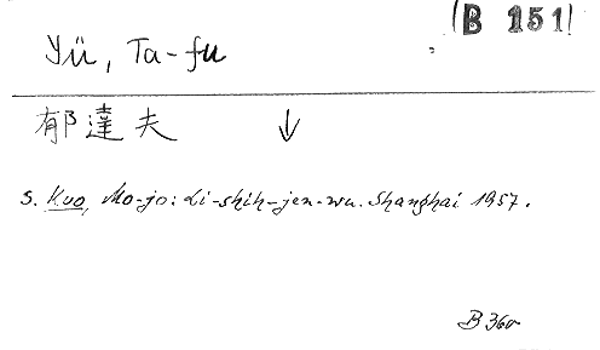 (B 151)
Yü, Ta-fu
郁達夫 ↓
s. Kuo, Mo-jo: Li-shih-jen-wu. Shanghai 1957.
B 360